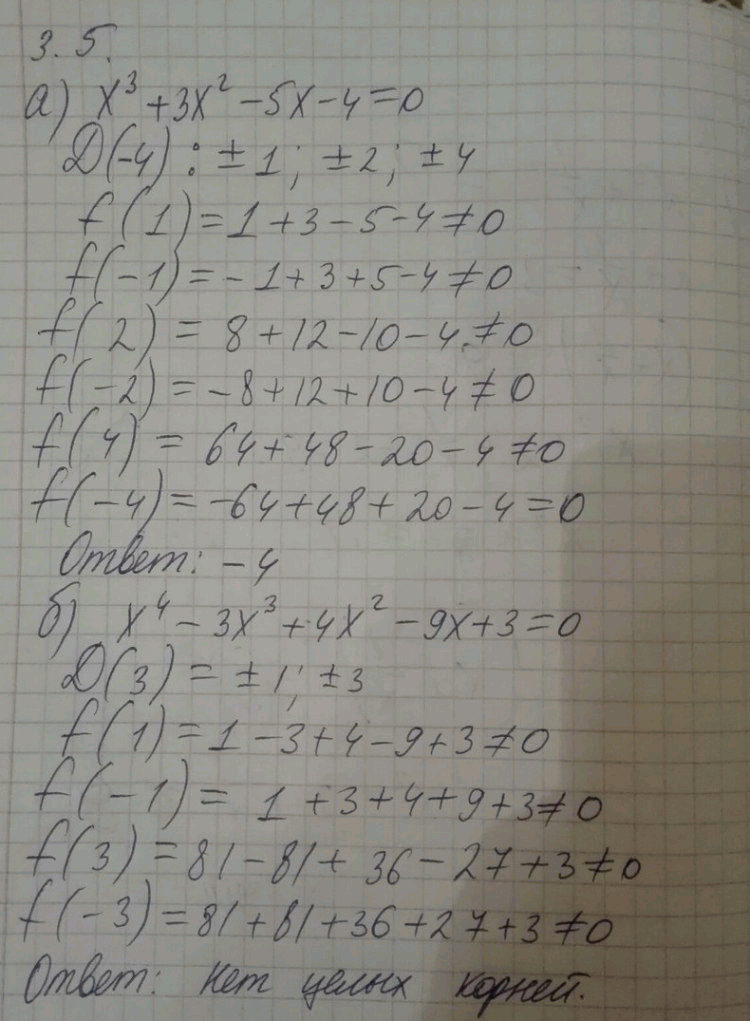 3.5.
а) x³+3x²-5x-4=0
D(-4): ±1; ±2; ±4
f(1)=1+3-5-4≠0
f(-1)=-1+3+5-4≠0
f(2)=8+12-10-4≠0
f(-2)=-8+12+10-4≠0
f(4)=64+48-20-4≠0
f(-4)=-64+48+20-4=0
Ответ: -4
б) x⁴-3x³+4x²-9x+3=0
D(3)=±1; ±3
f(1)=1-3+4-9+3≠0
f(-1)=1+3+4+9+3≠0
f(3)=81-81+36-27+3≠0
f(-3)=81+81+36+27+3≠0
Ответ: нет целых корней.